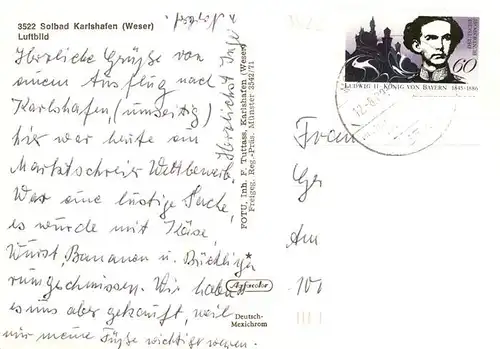 3522 Solbad Karlshafen (Weser)
Luftbild
Herzliche Grüße von
einem Ausflug nach
Karlshafen, (umseitig)
hier war heute am
Marktschreier Wettbewerb.
War eine lustige Sache,
es wurde mit Käse,
Wurst, Bananen u. Bücklinge
rumgeschmissen. Wir haben
es uns aber gekauft, weil
mir meine Füße wichtiger waren.
Herzlichst Inge
FOTU, Inh. F. Tuttass, Karlshafen (Weser)
Freigeg. Reg.-Präs. Münster 3542/71
Agfacolor
Deutsch-
Mexichrom
DEUTSCHE
BUNDESPOST
60
LUDWIG II · KÖNIG VON BAYERN 1845-1886
Frau
Am